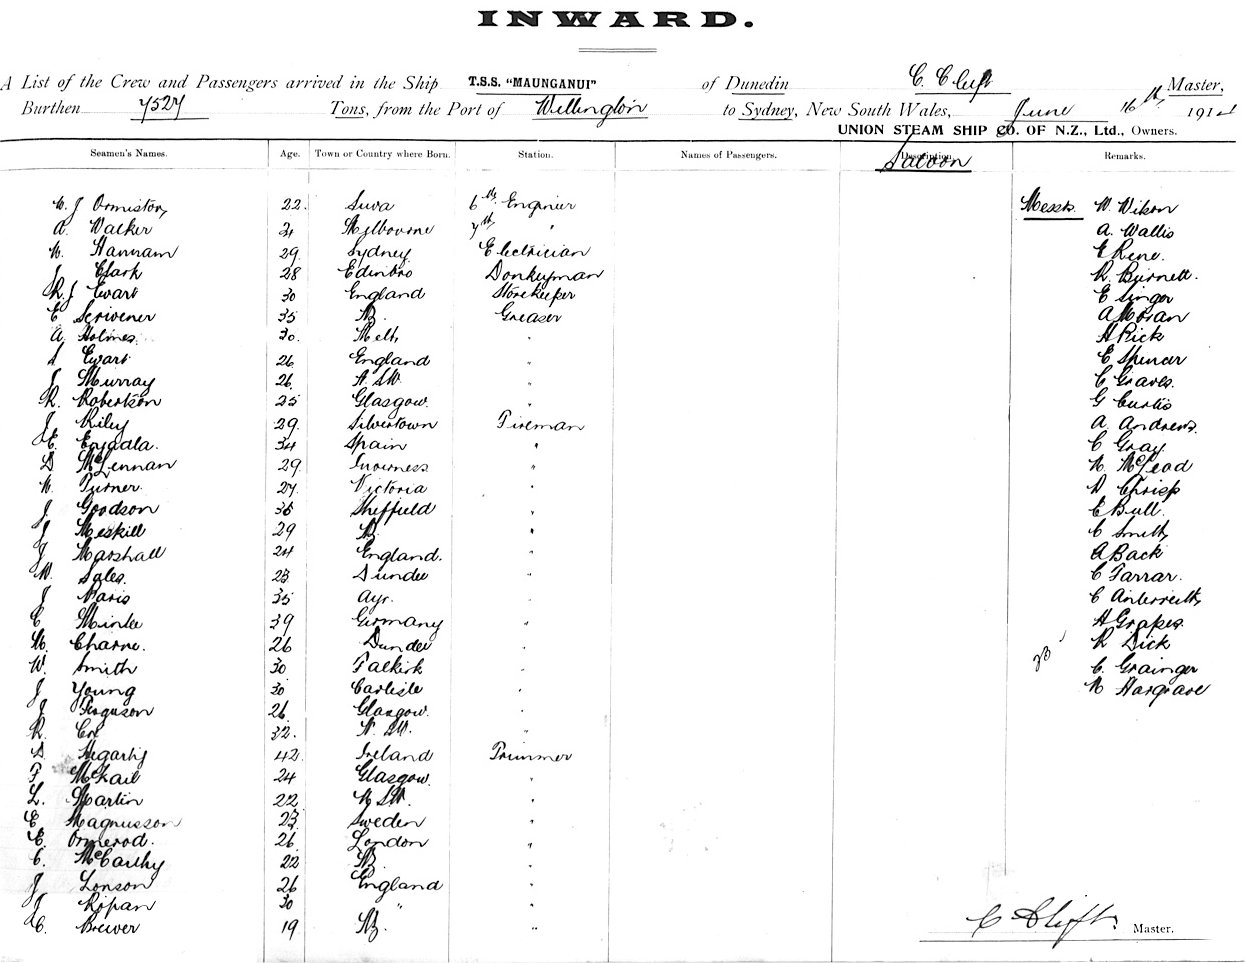 INWARD.
A List of the Crew and Passengers arrived in the Ship T.S.S. "MAUNGANUI" of Dunedin C Clift Master,
Burthen 7527 Tons, from the Port of Wellington to Sydney, New South Wales, June 16th 191
UNION STEAM SHIP CO. OF N.Z., Ltd., Owners.
Seamen's Names. Age. Town or Country where Born. Station. Names of Passengers. Description. Remarks.
Saloon
C. J Ormiston 22 Suva 6th Engineer Messrs. W. Wilson
A. Walker 21 Melbourne 7th " A. Wallis
W. Hannam 29 Sydney Electrician E Rene.
J Clark 28 Edinbro Donkeyman R. Burnett.
R. J Ewart 30 England Storekeeper E Singer
E Scrivener 35 NZ. Greaser A Moran
A. Holmes. 30. Melb, " H Rick
Ewart 26 England " E Spencer
J Murray 26 N SW. " C Graves.
R. Robertson 25 Glasgow. " G Curtis
J Riley 29. Silvertown Fireman A. Andrews.
E. 34 Spain " C Gray
D McLennan 29 Inverness " N McLeod
W. Turner. 27 Victoria " Chrisp
J. Goodson 36 Sheffield " E Bull.
J Meskill 29 NZ. " C Smith,
J Marshall 24 England. " A Back
W. Sales. 23 Dundee " C Farrar.
J Paris 35 Ayr. " C
C 39 Germany " H Grapes
W. Charne. 26 Dundee " R Dick
W. Smith 30 Falkirk " 23 C. Grainger
J Young 30 Carlisle " N Hargrave
J Ferguson 26 Glasgow. "
R. Cox 32. N. SW. "
D Hegarty 42 Ireland Trimmer
F McKail 24 Glasgow. "
L. Martin 22 N SW. "
E Magnusson 23 Sweden "
E. Ormerod. 26 London "
C. McCarthy 22 NZ. "
J Lonson 26 England "
J Ripan 30 " "
C. Brewer 19 NZ. "
C Clift Master.